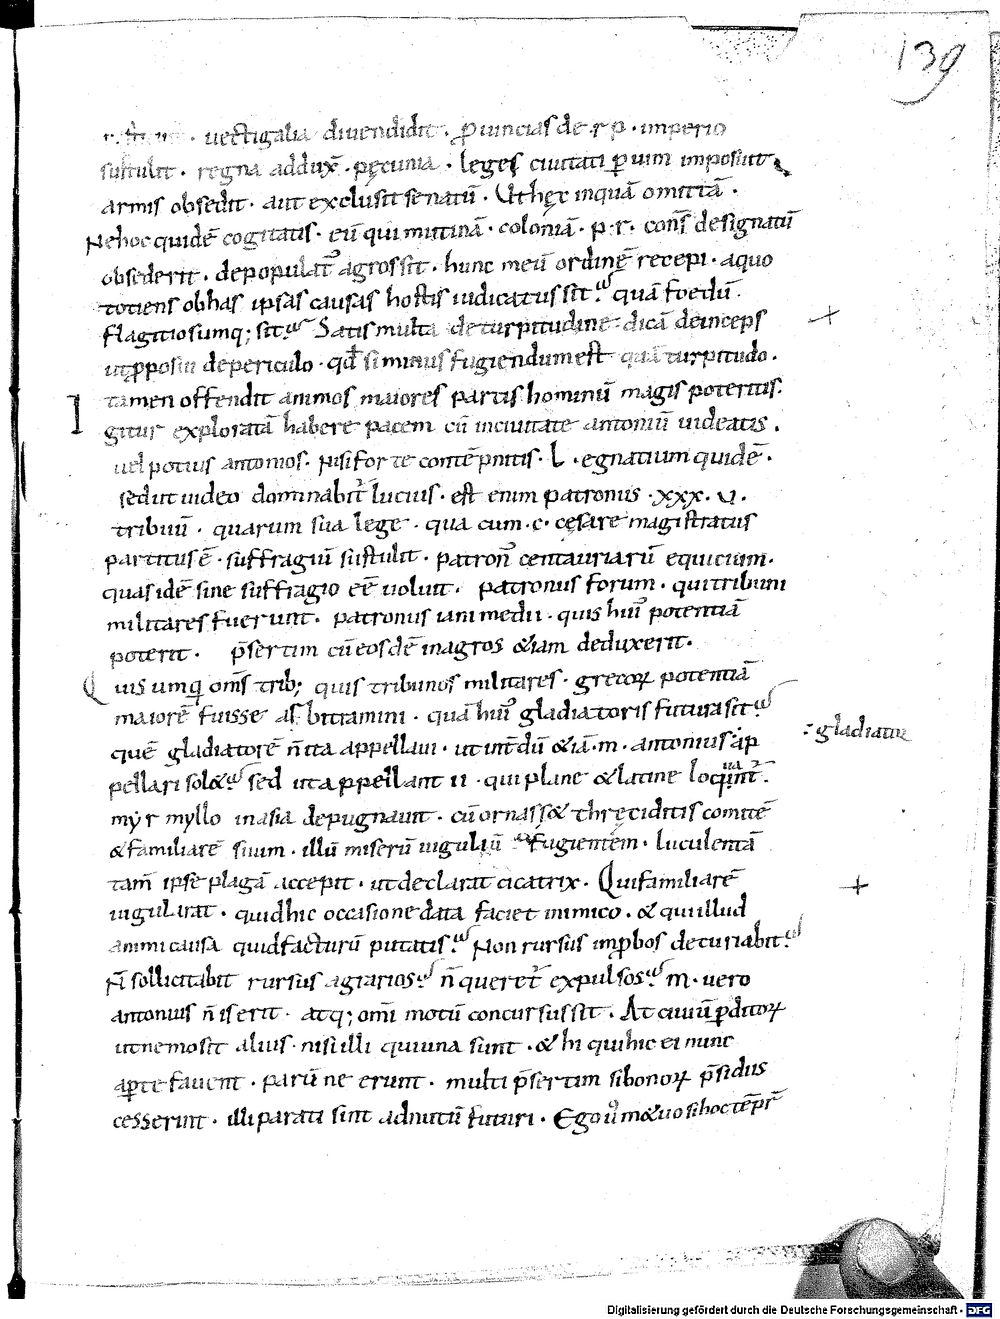 139
uectigalia diuendidit · ꝓuincias de · r p · imperio
sustulit · regna addux̄ · pęcunia · leges ciuitati ꝑ uim imposuit
armis obsedit · aut exclusit senatū · Ut hęc inquā omittā ·
Ne hoc quidē cogitatis · eū qui mutinā · coloniā · p · r · cons̄ designatū
obsederit · depopulat᷒ agros sit · hunc meū ordinē recepi · a quo
totiens ob has ipsas causas hostis iudicatus sit? quā foedū ·
flagitiosumq; sit? Satis multa de turpitudine · dicā deinceps
ut ꝓposui de periculo · qđ si minus fugiendum est quā turpitudo ·
tamen offendit animos maiores partis hominū magis poteritis ·
Igitur exploratā habere pacem cū in ciuitate antoniū uideatis ·
uel potius antonios · Nisi forte contēpnitis · L · egnatium quidē ·
sed ut uideo dominabit᷒ lucius · est enim patronus · xxx · v ·
tribuū · quarum sua lege · qua cum · c · cęsare magistratus
partitus ē · suffragiū sustulit · patron᷒ centauriarū equicium ·
quas idē sine suffragio eē uoluit · patronus forum · qui tribuni
militares fuerunt · patronus iani medii · quis hui᷒ potentiā
poterit · p̄sertim cū eosdē in agros &iam deduxerit ·
Quis umq̄ om̄s trib; quis tribunos militares · grecoꝝ potentiā
maiorē fuisse arbitramini · quā hui᷒ gladiatoris futura sit?
quē gladiatorē n̄ ita appellaui · ut int̄dū &iā · m · antonius ap
:· gladiator
pellari sol&? sed ut appellant ii · qui plane & latine locunt᷒ ·
myr myllo in asia depugnauit · cū ornass& thręciditis comitē
& familiarē suum · illū miserū iugulauit fugientem · luculentā
tam̄ ipse plagā accepit · ut declarat cicatrix · Qui familiarē
iugularat · quid hic occasione data faciet inimico · & qui illud
animi causa quid facturū putatis? Non rursus imꝓbos decuriabit?
N̄ sollicitabit rursus agrarios? n̄ queret᷒ expulsos? m · uero
antonius n̄ is erit · atq; om̄i motū concursus sit · At ciuiū ꝑditoꝝ
ut nemo sit alius · nisi illi qui una sunt · & hi qui hic ei nunc
aꝑte fauent · parū ne erunt · multi p̄sertim si bonoꝝ p̄sidus
cesserint · illi parati sint ad nutū futuri · Ego ū̊ m&uo si hoc tēpr̄
Digitalisierung gefördert durch die Deutsche Forschungsgemeinschaft · DFG